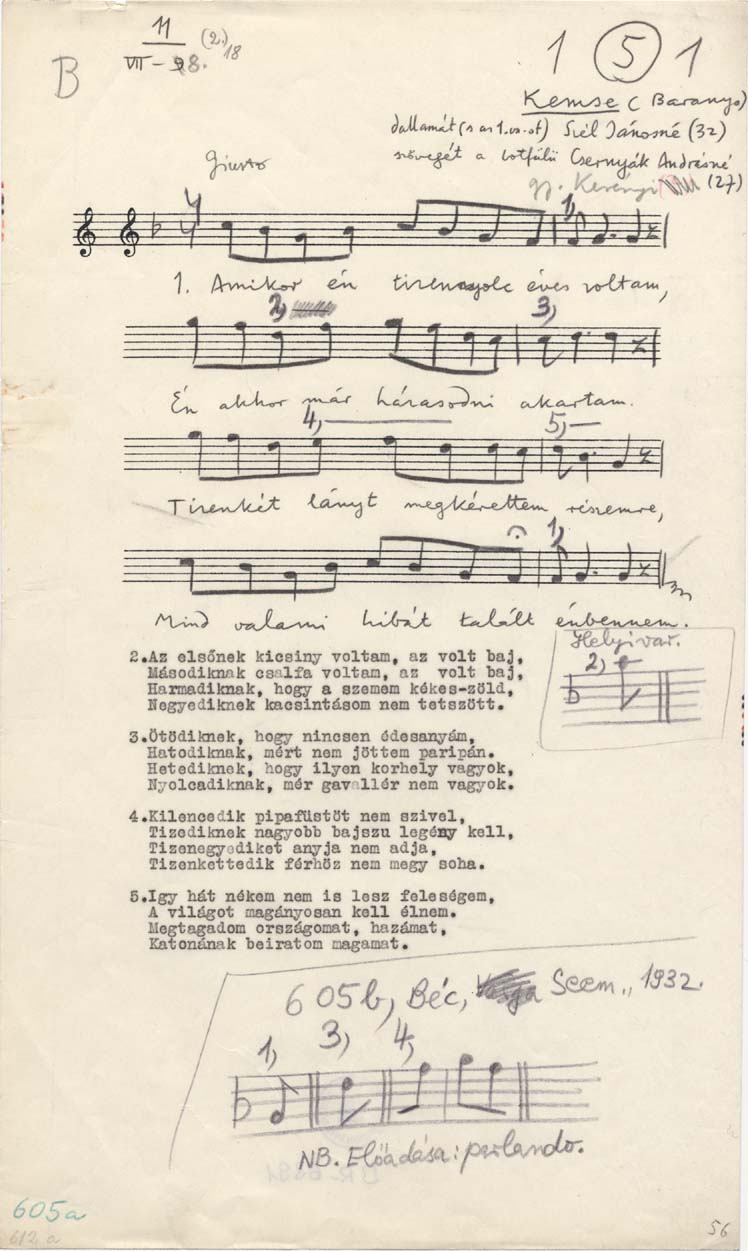 11
VII - 98. (2.) 18
B
1 5 1
Kemse (Baranya)
dallamát (s az 1. vs-ot) Szél Jánosné (32)
szövegét a botfülü Csernyák Andrásné
gy. Kerényi (27)
Giusto
1,
1. Amikor én tizennyolc éves voltam,
2, 3,
Én akkor már házasodni akartam.
4, 5,
Tizenkét lányt megkérettem részemre,
1,
Mind valami hibát talált énbennem.
Helyi var.
2,
2.Az elsőnek kicsiny voltam, az volt baj,
Másodiknak csalfa voltam, az volt baj,
Harmadiknak, hogy a szemem kékes-zöld,
Negyediknek kacsintásom nem tetszött.
3.Ötödiknek, hogy nincsen édesanyám,
Hatodiknak, mért nem jöttem paripán.
Hetediknek, hogy ilyen korhely vagyok,
Nyolcadiknak, mér gavallér nem vagyok.
4.Kilencedik pipafüstöt nem szivel,
Tizediknek nagyobb bajszu legény kell,
Tizenegyediket anyja nem adja,
Tizenkettedik férhöz nem megy soha.
5.Igy hát nékem nem is lesz feleségem,
A világot magányosan kell élnem.
Megtagadom országomat, hazámat,
Katonának beiratom magamat.
605b, Béc, Seem., 1932.
1, 3, 4,
NB. Előadása: parlando.
605a
612 a
56